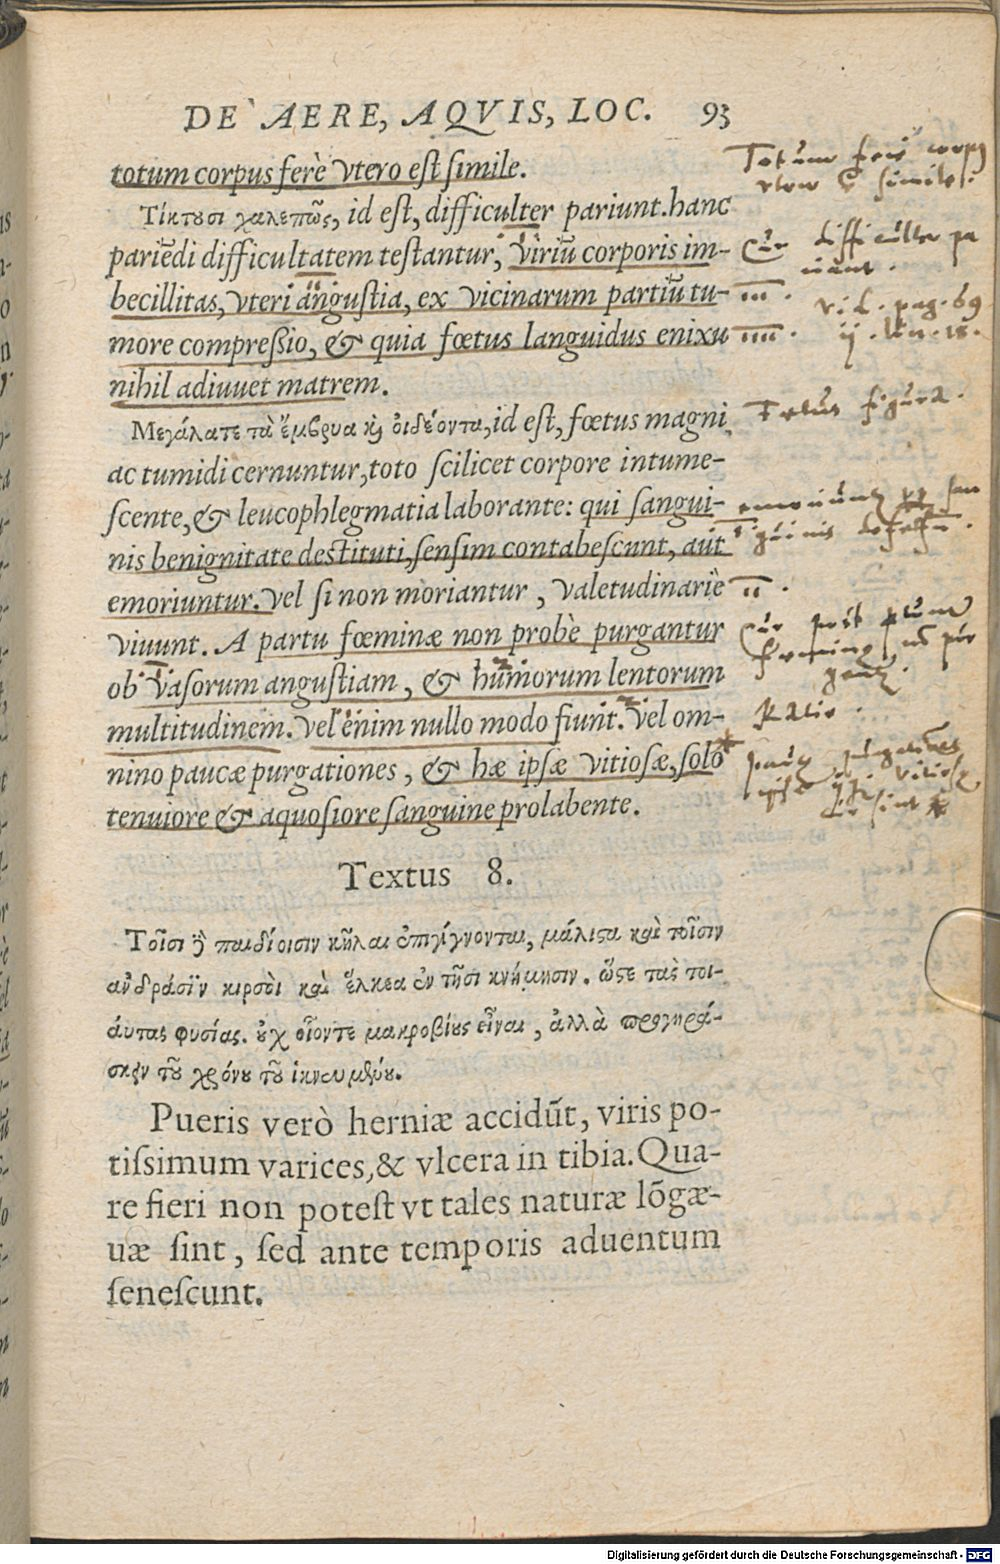 DE AERE, AQVIS, LOC. 93
totum corpus ferè vtero est simile.
Τίκτουσι χαλεπῶς, id est, difficulter pariunt. hanc
pariēdi difficultatem testantur, viriū corporis im-
becillitas, vteri angustia, ex vicinarum partiū tu-
more compressio, & quia fœtus languidus enixu
nihil adiuuet matrem.
Μεγάλα τε τὰ ἔμβρυα καὶ οἰδέοντα, id est, fœtus magni
ac tumidi cernuntur, toto scilicet corpore intume-
scente, & leucophlegmatia laborante: qui sangui-
nis benignitate destituti, sensim contabescunt, aut
emoriuntur. Vel si non moriantur, valetudinariè
viuunt. A partu fœminæ non probè purgantur
ob vasorum angustiam, & humorum lentorum
multitudinem. Vel enim nullo modo fiunt. Vel om-
nino paucæ purgationes, & hæ ipsæ vitiosæ, solo
tenuiore & aquosiore sanguine prolabente.
Totum corp
simile.
Cur difficulter pa
riunt.
vid. pag. 69
lin. 18.
figura.
Cur post
Ratio.
vitiosæ
sint
Textus 8.
Τοῖσι δὲ παιδίοισιν κῆλαι ἐπιγίγνονται, μάλιστα καὶ τοῖσιν
ἀνδράσιν κιρσοὶ καὶ ἕλκεα ἐν τῇσι κνήμῃσιν. ὥστε τὰς τοι-
άυτας φυσίας. οὐχ οἷόντε μακροβίους εἶναι, ἀλλὰ προγηρά-
σκειν τοῦ χρόνου τοῦ ἱκνευμένου.
Pueris verò herniæ accidūt, viris po-
tissimum varices, & vlcera in tibia. Qua-
re fieri non potest vt tales naturæ lōgæ-
uæ sint, sed ante temporis aduentum
senescunt.
Digitalisierung gefördert durch die Deutsche Forschungsgemeinschaft - DFG